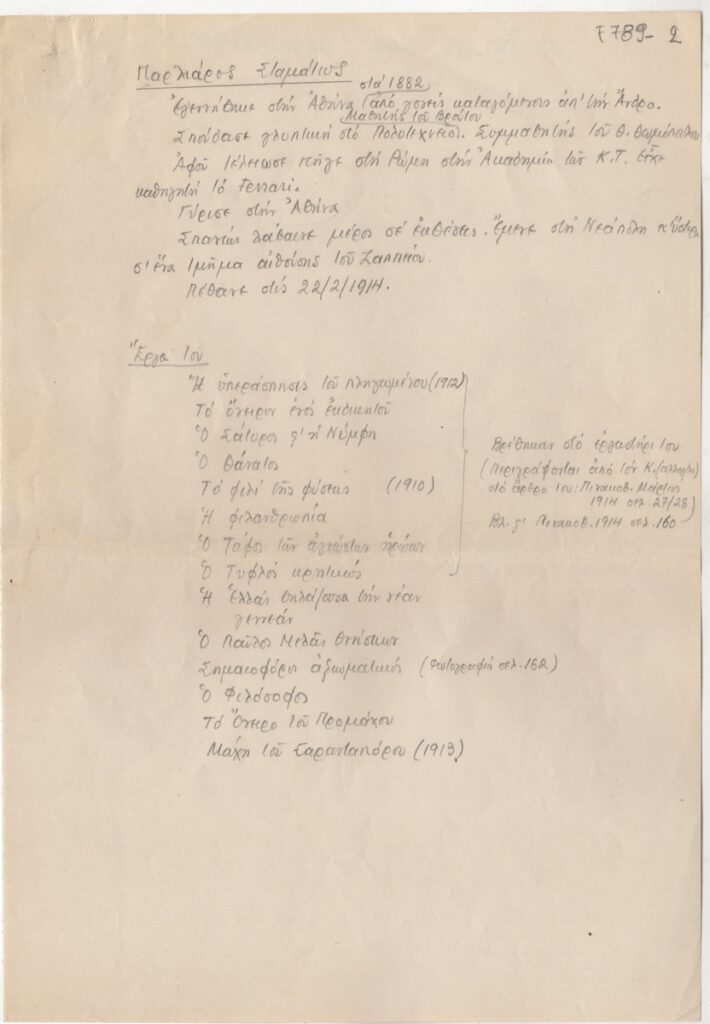 7789-2
Παρλιάρος Σταματίος
στά 1882
Ἐγεννήθηκε στήν Ἀθήνα (ἀπό γονεῖς καταγόμενους ἀπ' τήν Ἄνδρο.
Μαθητής τοῦ Βρούτου
Σπούδασε γλυπτική στό Πολυτεχνεῖο. Συμμαθητής τοῦ Θ. Θωμόπουλου
Ἀφοῦ τέλειωσε πῆγε στή Ρώμη στήν Ἀκαδημία τῶν Κ.Τ. Εἶχε
καθηγητή τό Ferrari.
Γύρισε στήν Ἀθήνα
Σπανίως λάβαινε μέρος σέ ἐκθέσεις. Ἔμενε στή Νεάπολη κ' ὕστερα
σ' ἕνα τμῆμα αἰθούσης τοῦ Ζαππείου.
Πέθανε στίς 22/2/1914.
Ἔργα του
Ἡ ὑπεράσπησις τοῦ πληγωμένου (1912)
Τό ὄνειρον ἑνός ἐκδικητοῦ
Ὁ Σάτυρος ϛ' ἡ Νύμφη
Ὁ Θάνατος
Τό φιλί τῆς φύσεως (1910)
Ἡ φιλανθρωπία
Ὁ Τάφος τῶν ἀγνώστων ἡρώων
Ὁ Τυφλός κρητικός
Βρέθηκαν στό ἐργαστήρι του
(Περιγράφονται ἀπό τόν Κ.
στό ἄρθρο του: Πινακοθ. Μάρτιος
1914 σελ. 27/28)
Βλ. ϛ' Πινακοθ. 1914 σελ. 160
Ἡ Ἑλλάς θηλάζουσα τήν νέαν
γενεάν
Ὁ Παῦλος Μελᾶς θνήσκων
Σημαιοφόρος ἀξιωματικός (Φωτογραφία σελ. 162)
Ὁ Φιλόσοφος
Τό Ὄνειρο τοῦ Προμάχου
Μάχη τοῦ Σαρανταπόρου (1913)